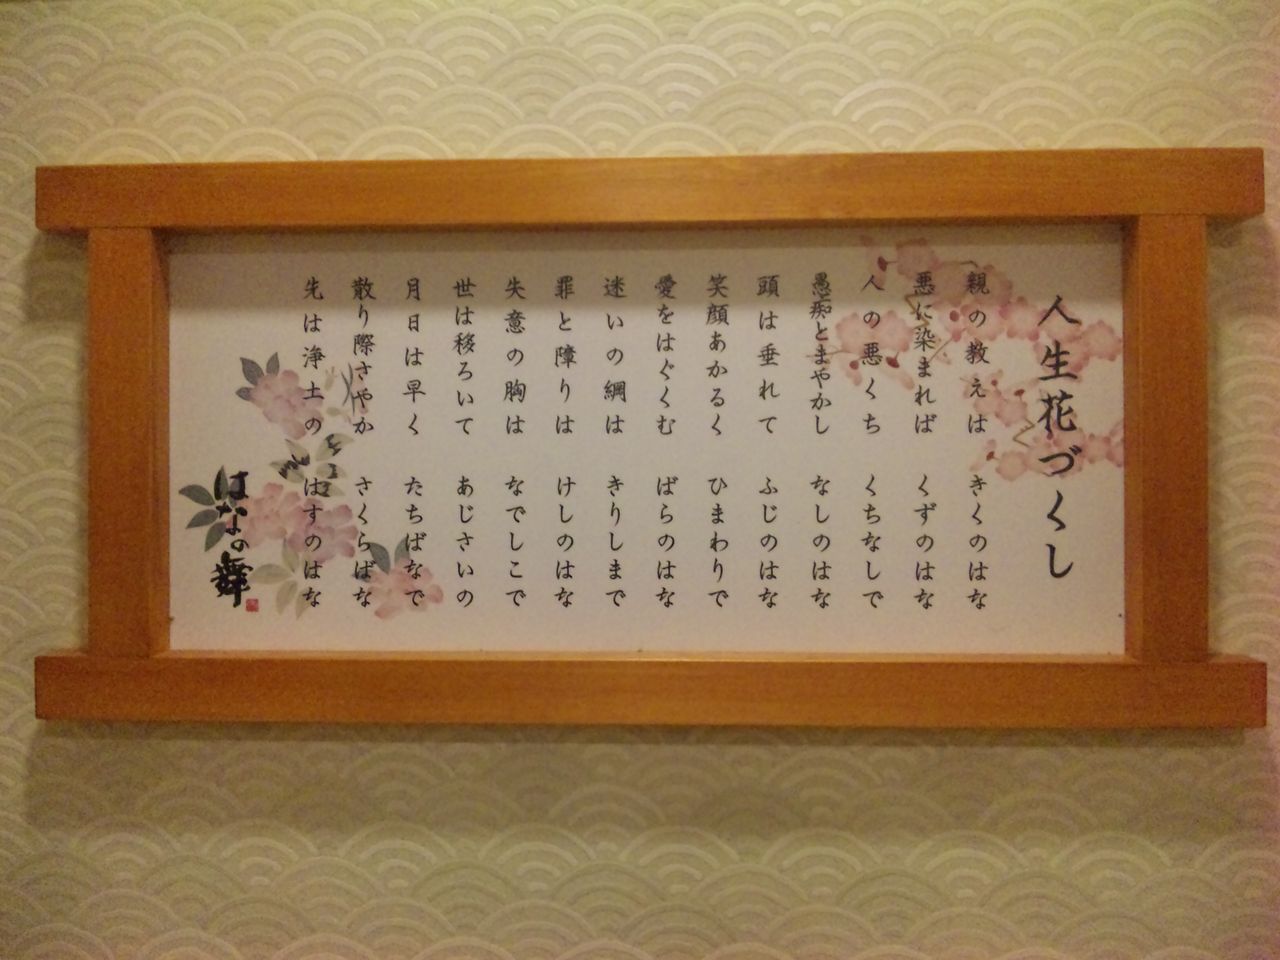 人生花づくし
親の教えは きくのはな
悪に染まれば くずのはな
人の悪くち くちなしで
愚痴とまやかし なしのはな
頭は垂れて ふじのはな
笑顔あかるく ひまわりで
愛をはぐくむ ばらのはな
迷いの綱は きりしまで
罪と障りは けしのはな
失意の胸は なでしこで
世は移ろいて あじさいの
月日は早く たちばなで
散り際さやか さくらばな
先は浄土の はすのはな
はなの舞